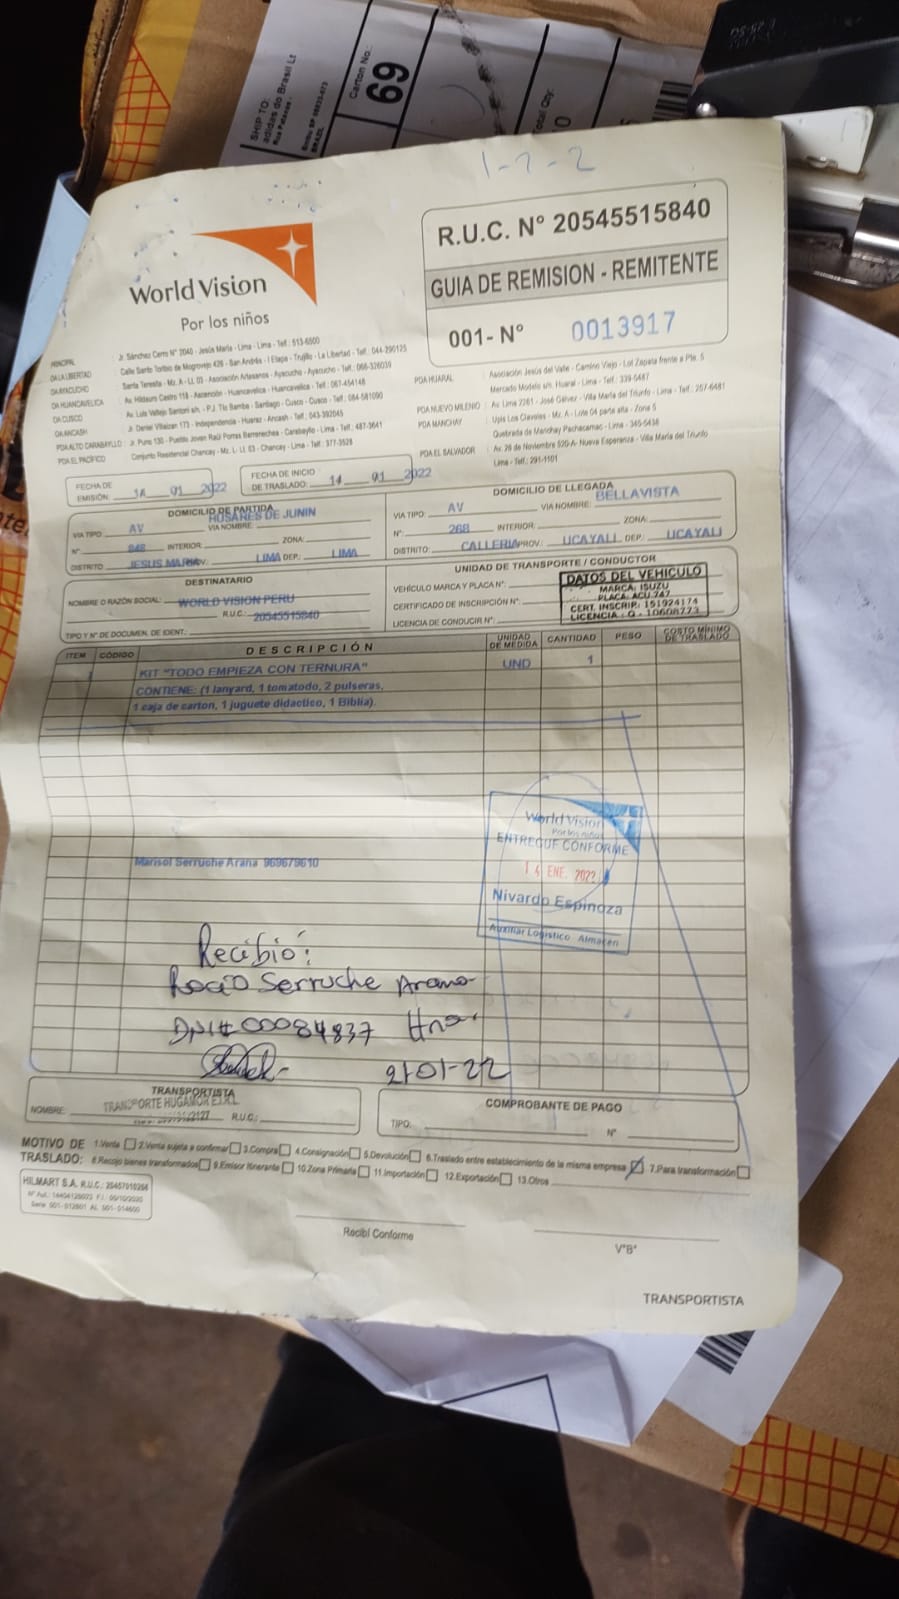 SHIP TO:
adidas do Brasil Lt
Carton No.:
69
BRAZIL
1-2-2
World Vision
Por los niños
R.U.C. N° 20545515840
GUIA DE REMISION - REMITENTE
001- N° 0013917
PRINCIPAL : Jr. Sánchez Cerro N° 2040 - Jesús María - Lima - Lima - Telf.: 513-6500
DA LA LIBERTAD : Calle Santo Toribio de Mogrovejo 426 - San Andrés - I Etapa - Trujillo - La Libertad - Telf.: 044-290125
DA AYACUCHO : Santa Teresita - Mz. A - Ll. 03 - Asociación Artesanos - Ayacucho - Ayacucho - Telf.: 066-326039
DA HUANCAVELICA : Av. Hildauro Castro 118 - Ascención - Huancavelica - Huancavelica - Telf.: 067-454148
DA CUSCO : Av. Luis Vallejo Santoni s/n. - P.J. Tío Bamba - Santiago - Cusco - Cusco - Telf.: 084-581090
DA ANCASH : Jr. Daniel Villaizan 173 - Independencia - Huaraz - Ancash - Telf.: 043-392045
PDA ALTO CARABAYLLO : Jr. Puno 130 - Pueblo Joven Raúl Porras Barrenechea - Carabayllo - Lima - Lima - Telf.: 487-3641
PDA EL PACÍFICO : Conjunto Residencial Chancay - Mz. L- Ll. 03 - Chancay - Lima - Telf.: 377-3528
PDA HUARAL : Asociación Jesús del Valle - Camino Viejo - Lol Zapata frente a Pte. 5
Mercado Modelo s/n. Huaral - Lima - Telf.: 339-0487
PDA NUEVO MILENIO : Av. Lima 7261 - José Gálvez - Villa María del Triunfo - Lima - Telf.: 257-6481
PDA MANCHAY : Upis Los Claveles - Mz. A - Lote 04 parte alta - Zona 5
Quebrada de Manchay Pachacamac - Lima - 345-5438
PDA EL SALVADOR : Av. 26 de Noviembre 520-A- Nueva Esperanza - Villa María del Triunfo
Lima - Telf.: 291-1101
FECHA DE EMISIÓN: 14 01 2022
FECHA DE INICIO DE TRASLADO: 14 01 2022
DOMICILIO DE PARTIDA
VIA TIPO: AV VIA NOMBRE: HUSARES DE JUNIN
N° 848 INTERIOR: ZONA:
DISTRITO JESUS MARIA PROV.: LIMA DEP.: LIMA
DOMICILIO DE LLEGADA
VIA TIPO: AV VIA NOMBRE: BELLAVISTA
N°: 268 INTERIOR: ZONA:
DISTRITO: CALLERIA PROV.: UCAYALI DEP.: UCAYALI
DESTINATARIO
NOMBRE O RAZÓN SOCIAL: WORLD VISION PERU
R.U.C.: 20545515840
TIPO Y N° DE DOCUMEN. DE IDENT.:
UNIDAD DE TRANSPORTE / CONDUCTOR
VEHÍCULO MARCA Y PLACA N°:
CERTIFICADO DE INSCRIPCIÓN N°:
LICENCIA DE CONDUCIR N°:
DATOS DEL VEHICULO
MARCA: ISUZU
PLACA: ACU 747
CERT. INSCRIP: 151924174
LICENCIA : Q - 10608773
ITEM CÓDIGO DESCRIPCIÓN UNIDAD DE MEDIDA CANTIDAD PESO COSTO MÍNIMO DE TRASLADO
1 KIT "TODO EMPIEZA CON TERNURA" UND 1
CONTIENE: (1 lanyard, 1 tomatodo, 2 pulseras,
1 caja de carton, 1 juguete didactico, 1 Biblia).
World Vision
Por los niños
ENTREGUE CONFORME
14 ENE. 2022
Nivardo Espinoza
Auxiliar Logístico Almacén
Marisol Serruche Arana 969679610
Recibió:
Rocío Serruche Arana
DNI# 00084837 Hna.
21-01-22
TRANSPORTISTA
NOMBRE: TRANSPORTE HUGAMOR E.I.R.L. R.U.C.:
COMPROBANTE DE PAGO
TIPO: N°
MOTIVO DE TRASLADO: 1.Venta 2.Venta sujeta a confirmar 3.Compra 4.Consignación 5.Devolución 6.Traslado entre establecimiento de la misma empresa 7.Para transformación
8.Recojo bienes transformados 9.Emisor Itinerante 10.Zona Primaria 11.Importación 12.Exportación 13.Otros
HILMART S.A. R.U.C.: 20457010256
Serie 001-012601 AL 001-014600
Recibí Conforme
V°B°
TRANSPORTISTA